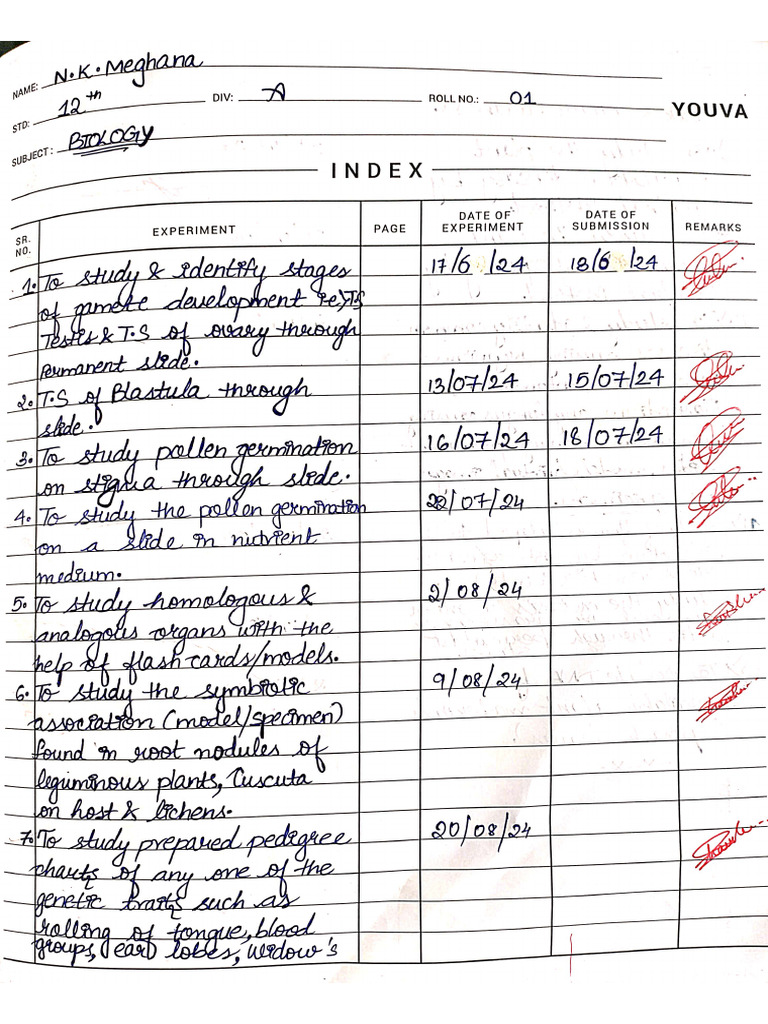 NAME: N.K. Meghana
STD: 12th DIV: A ROLL NO.: 01 YOUVA
SUBJECT: BIOLOGY
INDEX
SR. NO. EXPERIMENT PAGE DATE OF EXPERIMENT DATE OF SUBMISSION REMARKS
1. To study & identify stages 17/6/24 18/6/24
of gamete development i.e, T.S
Testis & T.S of ovary through
Permanent slide.
2. T.S of Blastula through 13/07/24 15/07/24
slide.
3. To study pollen germination 16/07/24 18/07/24
on stigma through slide.
4. To study the pollen germination 22/07/24
on a slide in nutrient
medium.
5. To study homologous & 2/08/24
analogous organs with the
help of flash cards/models.
6. To study the symbiotic 9/08/24
association (model/specimen)
found in root nodules of
leguminous plants, Cuscuta
on host & lichens.
7. To study prepared pedigree 20/08/24
charts of any one of the
genetic traits such as
rolling of tongue, blood
groups, ear lobes, widow's